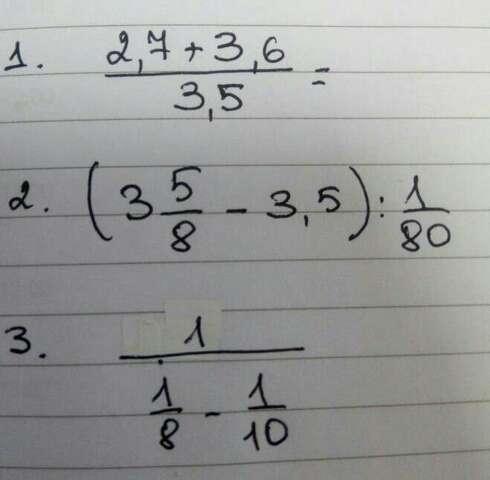 1. (2,7 + 3,6)/3,5 =
2. (3 5/8 - 3,5) : 1/80
3. 1/(1/8 - 1/10)